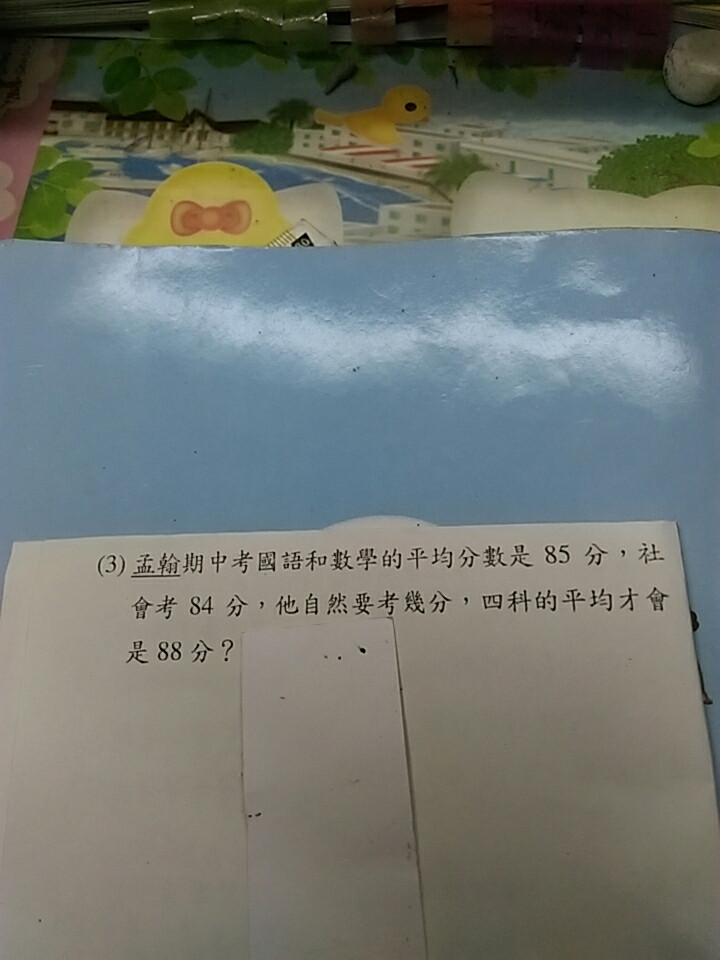 (3) 孟翰期中考國語和數學的平均分數是 85 分，社
會考 84 分，他自然要考幾分，四科的平均才會
是 88 分？